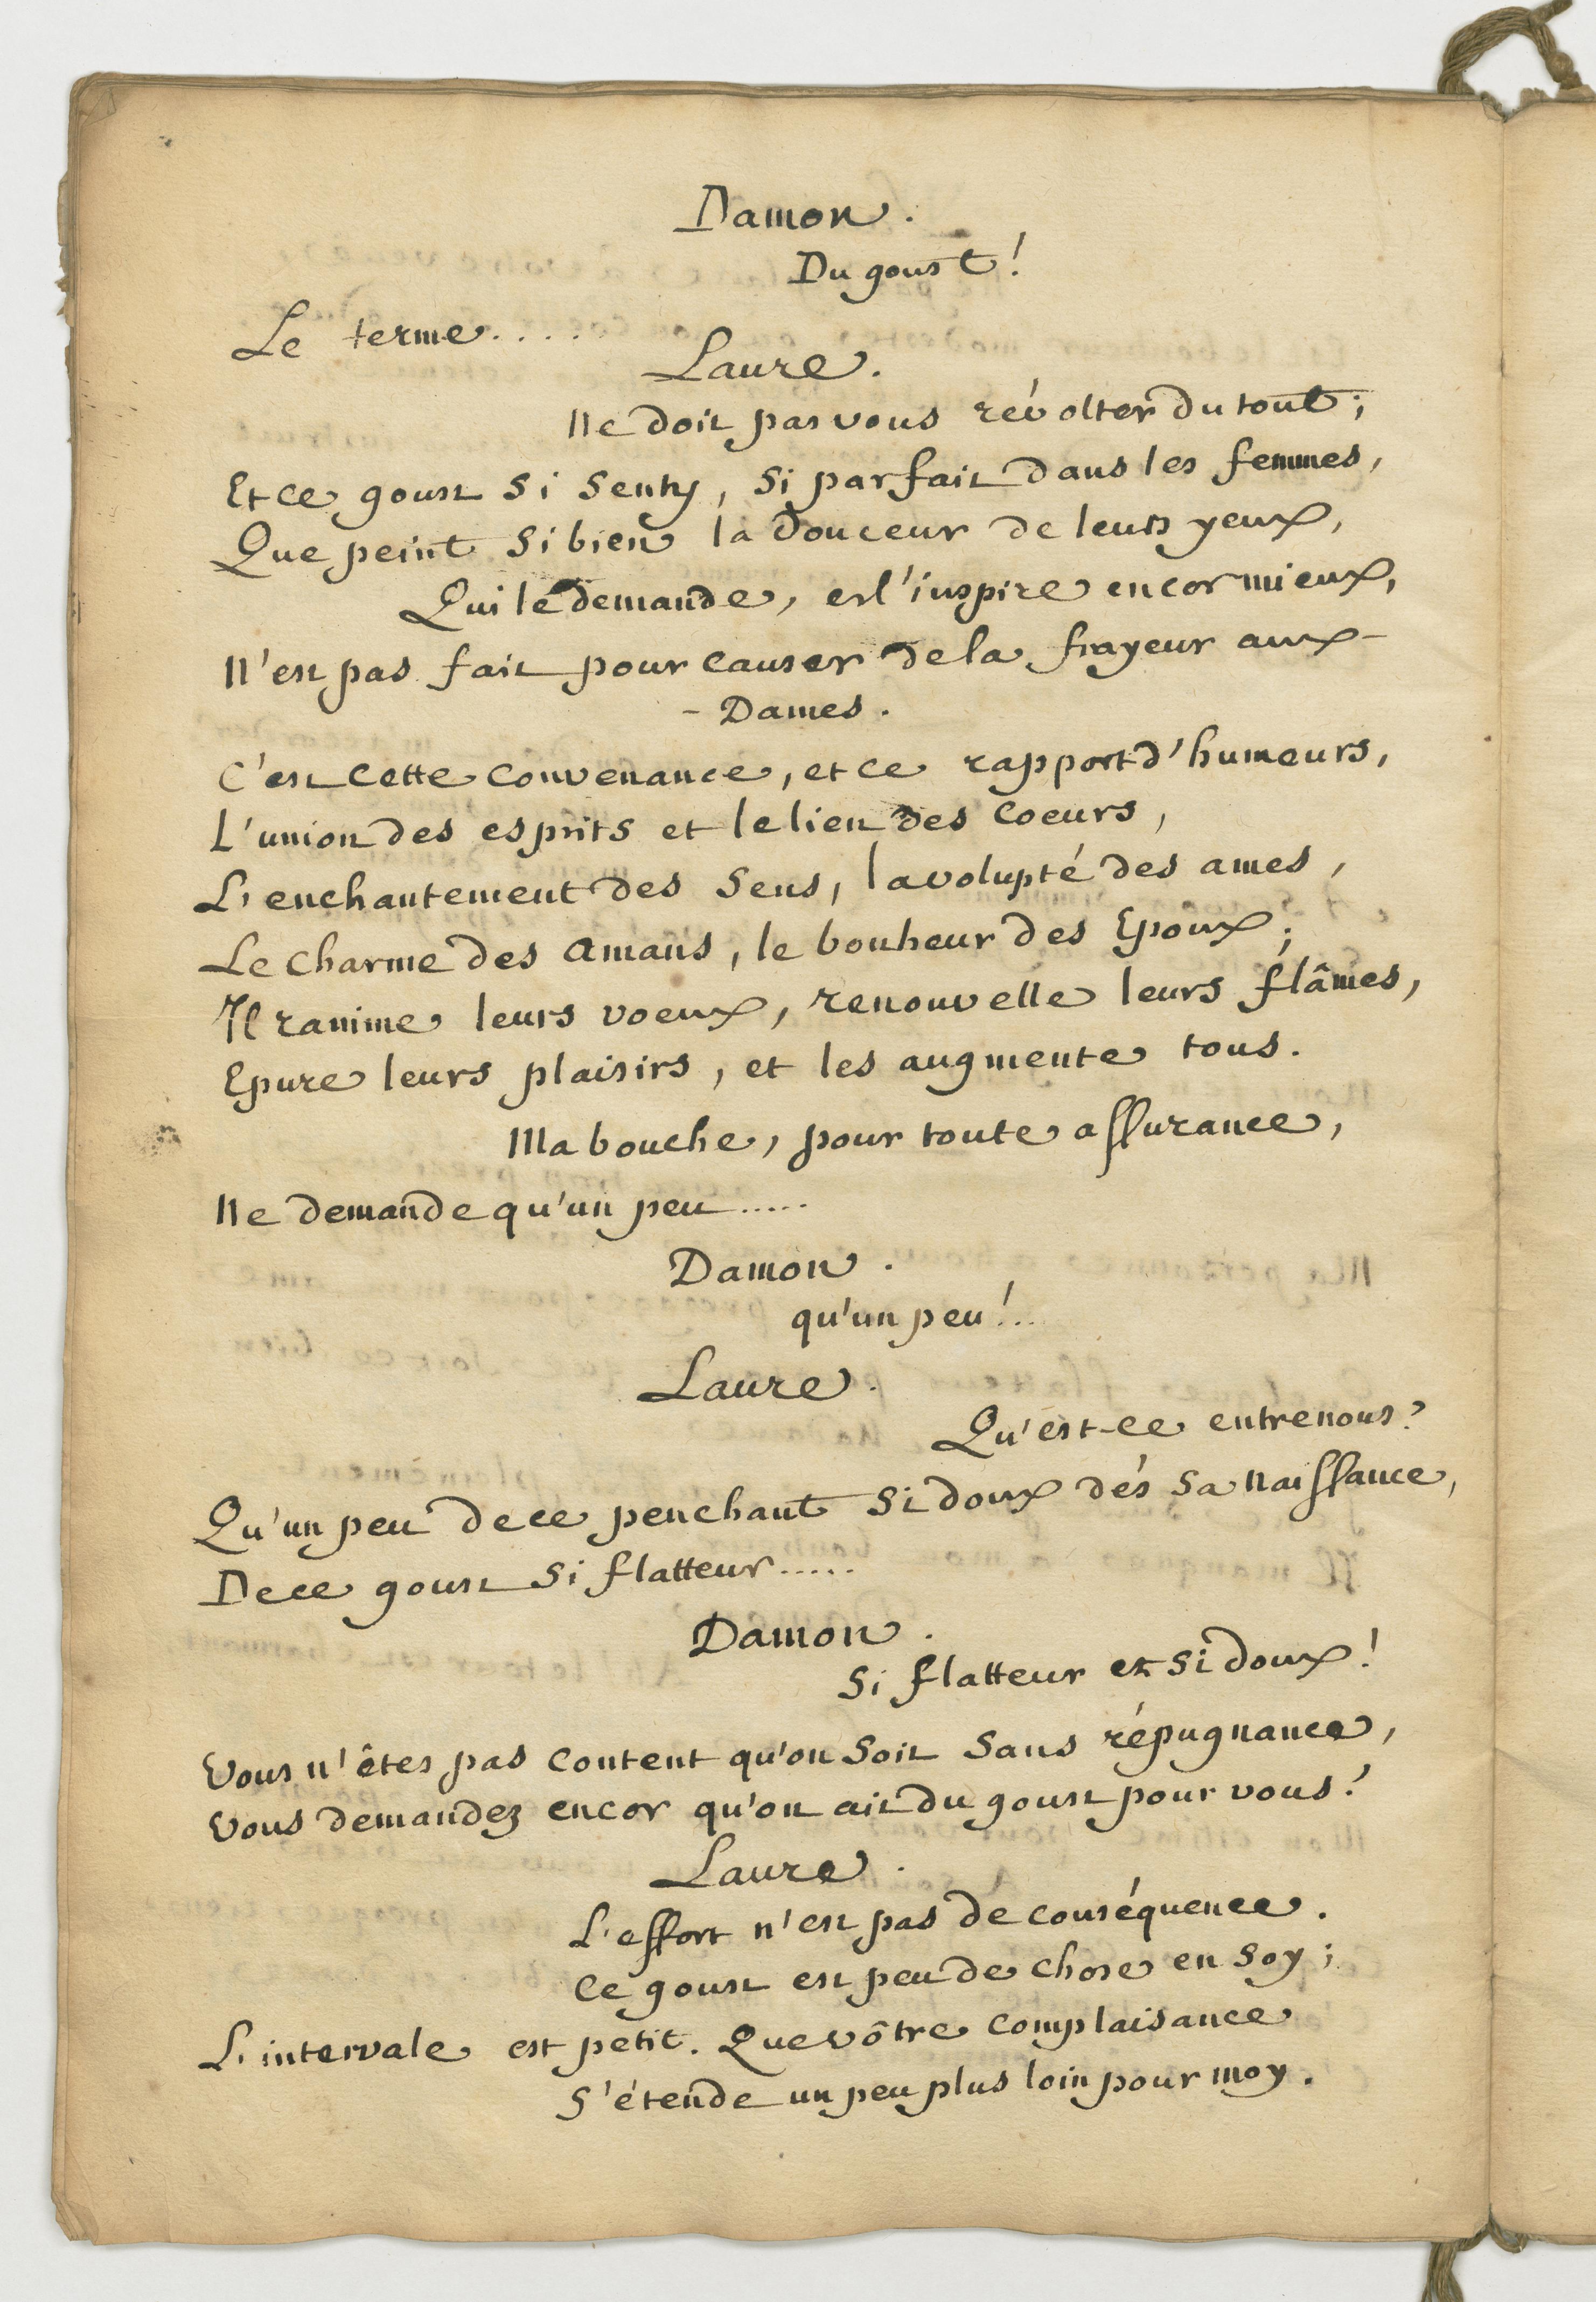 Damon.
Du goust!
Le terme.....
Laure.
Ne doit pas vous révolter du tout;
Et ce goust si senty, si parfait dans les femmes,
Que peint si bien la douceur de leurs yeux,
Qui le demande, et l'inspire encor mieux,
N'est pas fait pour causer de la frayeur aux-
- Dames.
C'est cette convenance, et ce rapport d'humeurs,
L'union des esprits et le lien des coeurs,
L'enchantement des sens, la volupté des ames,
Le charme des amans, le bonheur des Epoux;
Il ranime leurs voeux, renouvelle leurs flâmes,
Epure leurs plaisirs, et les augmente tous.
Ma bouche, pour toute assurance,
Ne demande qu'un peu.....
Damon.
qu'un peu!..
Laure.
Qu'est-ce entre nous?
Qu'un peu de ce penchant si doux dés sa naissance,
De ce goust si flatteur.....
Damon.
Si flatteur et si doux!
Vous n'êtes pas content qu'on soit sans répugnance,
Vous demandez encor qu'on ait du goust pour vous!
Laure.
L'effort n'est pas de conséquence.
Ce goust est peu de chose en soy;
L'intervale est petit. Que vôtre complaisance
S'étende un peu plus loin pour moy.